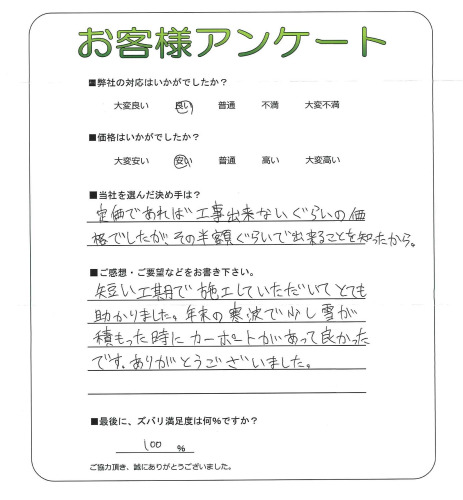 お客様アンケート
■弊社の対応はいかがでしたか？
大変良い 良い 普通 不満 大変不満
■価格はいかがでしたか？
大変安い 安い 普通 高い 大変高い
■当社を選んだ決め手は？
定価であれば工事出来ないぐらいの価
格でしたが、その半額ぐらいで出来ることを知ったから。
■ご感想・ご要望などをお書き下さい。
短い工期で施工していただいてとても
助かりました。年末の寒波で少し雪が
積もった時にカーポートがあって良かった
です。ありがとうございました。
■最後に、ズバリ満足度は何％ですか？
100 ％
ご協力頂き、誠にありがとうございました。